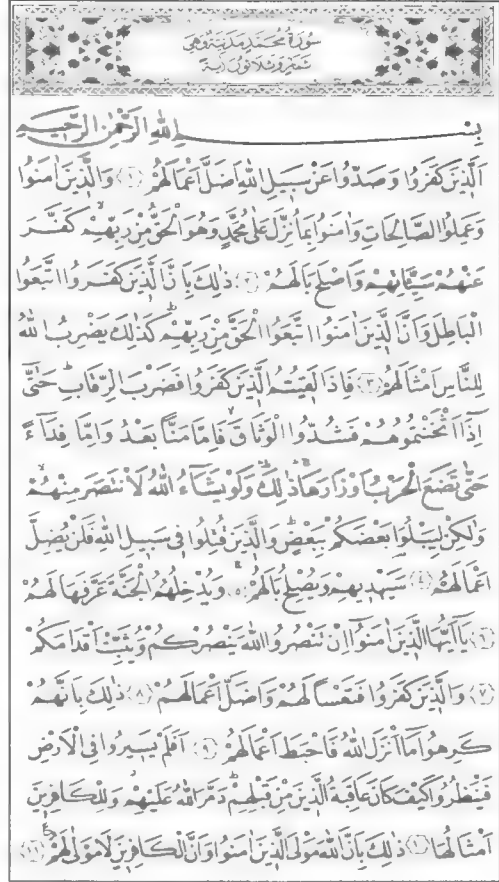 سُورَةُ مُحَمَّدٍ مَدَنِيَّةٌ وَهِيَ
ثَمَانٍ وَثَلَاثُونَ آيَةً
بِسْمِ اللهِ الرَّحْمٰنِ الرَّحِيمِ
اَلَّذِينَ كَفَرُوا وَصَدُّوا عَنْ سَبِيلِ اللهِ اَضَلَّ اَعْمَالَهُمْ ﴿١﴾ وَالَّذِينَ اٰمَنُوا
وَعَمِلُوا الصَّالِحَاتِ وَاٰمَنُوا بِمَا نُزِّلَ عَلٰى مُحَمَّدٍ وَهُوَ الْحَقُّ مِنْ رَبِّهِمْۙ كَفَّرَ
عَنْهُمْ سَيِّئَاتِهِمْ وَاَصْلَحَ بَالَهُمْ ﴿٢﴾ ذٰلِكَ بِاَنَّ الَّذِينَ كَفَرُوا اتَّبَعُوا
الْبَاطِلَ وَاَنَّ الَّذِينَ اٰمَنُوا اتَّبَعُوا الْحَقَّ مِنْ رَبِّهِمْۜ كَذٰلِكَ يَضْرِبُ اللهُ
لِلنَّاسِ اَمْثَالَهُمْ ﴿٣﴾ فَاِذَا لَقِيتُمُ الَّذِينَ كَفَرُوا فَضَرْبَ الرِّقَابِۜ حَتّٰٓى
اِذَٓا اَثْخَنْتُمُوهُمْ فَشُدُّوا الْوَثَاقَۙ فَاِمَّا مَنًّا بَعْدُ وَاِمَّا فِدَٓاءً
حَتّٰى تَضَعَ الْحَرْبُ اَوْزَارَهَاۚ ذٰلِكَۜ وَلَوْ يَشَٓاءُ اللهُ لَانْتَصَرَ مِنْهُمْۙ
وَلٰكِنْ لِيَبْلُوَا بَعْضَكُمْ بِبَعْضٍۜ وَالَّذِينَ قُتِلُوا فِي سَبِيلِ اللهِ فَلَنْ يُضِلَّ
اَعْمَالَهُمْ ﴿٤﴾ سَيَهْدِيهِمْ وَيُصْلِحُ بَالَهُمْۚ ﴿٥﴾ وَيُدْخِلُهُمُ الْجَنَّةَ عَرَّفَهَا لَهُمْ
﴿٦﴾ يَٓا اَيُّهَا الَّذِينَ اٰمَنُٓوا اِنْ تَنْصُرُوا اللهَ يَنْصُرْكُمْ وَيُثَبِّتْ اَقْدَامَكُمْ
﴿٧﴾ وَالَّذِينَ كَفَرُوا فَتَعْسًا لَهُمْ وَاَضَلَّ اَعْمَالَهُمْ ﴿٨﴾ ذٰلِكَ بِاَنَّهُمْ
كَرِهُوا مَٓا اَنْزَلَ اللهُ فَاَحْبَطَ اَعْمَالَهُمْ ﴿٩﴾ اَفَلَمْ يَسِيرُوا فِي الْاَرْضِ
فَيَنْظُرُوا كَيْفَ كَانَ عَاقِبَةُ الَّذِينَ مِنْ قَبْلِهِمْۜ دَمَّرَ اللهُ عَلَيْهِمْۘ وَلِلْكَافِرِينَ
اَمْثَالُهَا ﴿١٠﴾ ذٰلِكَ بِاَنَّ اللهَ مَوْلَى الَّذِينَ اٰمَنُوا وَاَنَّ الْكَافِرِينَ لَا مَوْلٰى لَهُمْ ﴿١١﴾